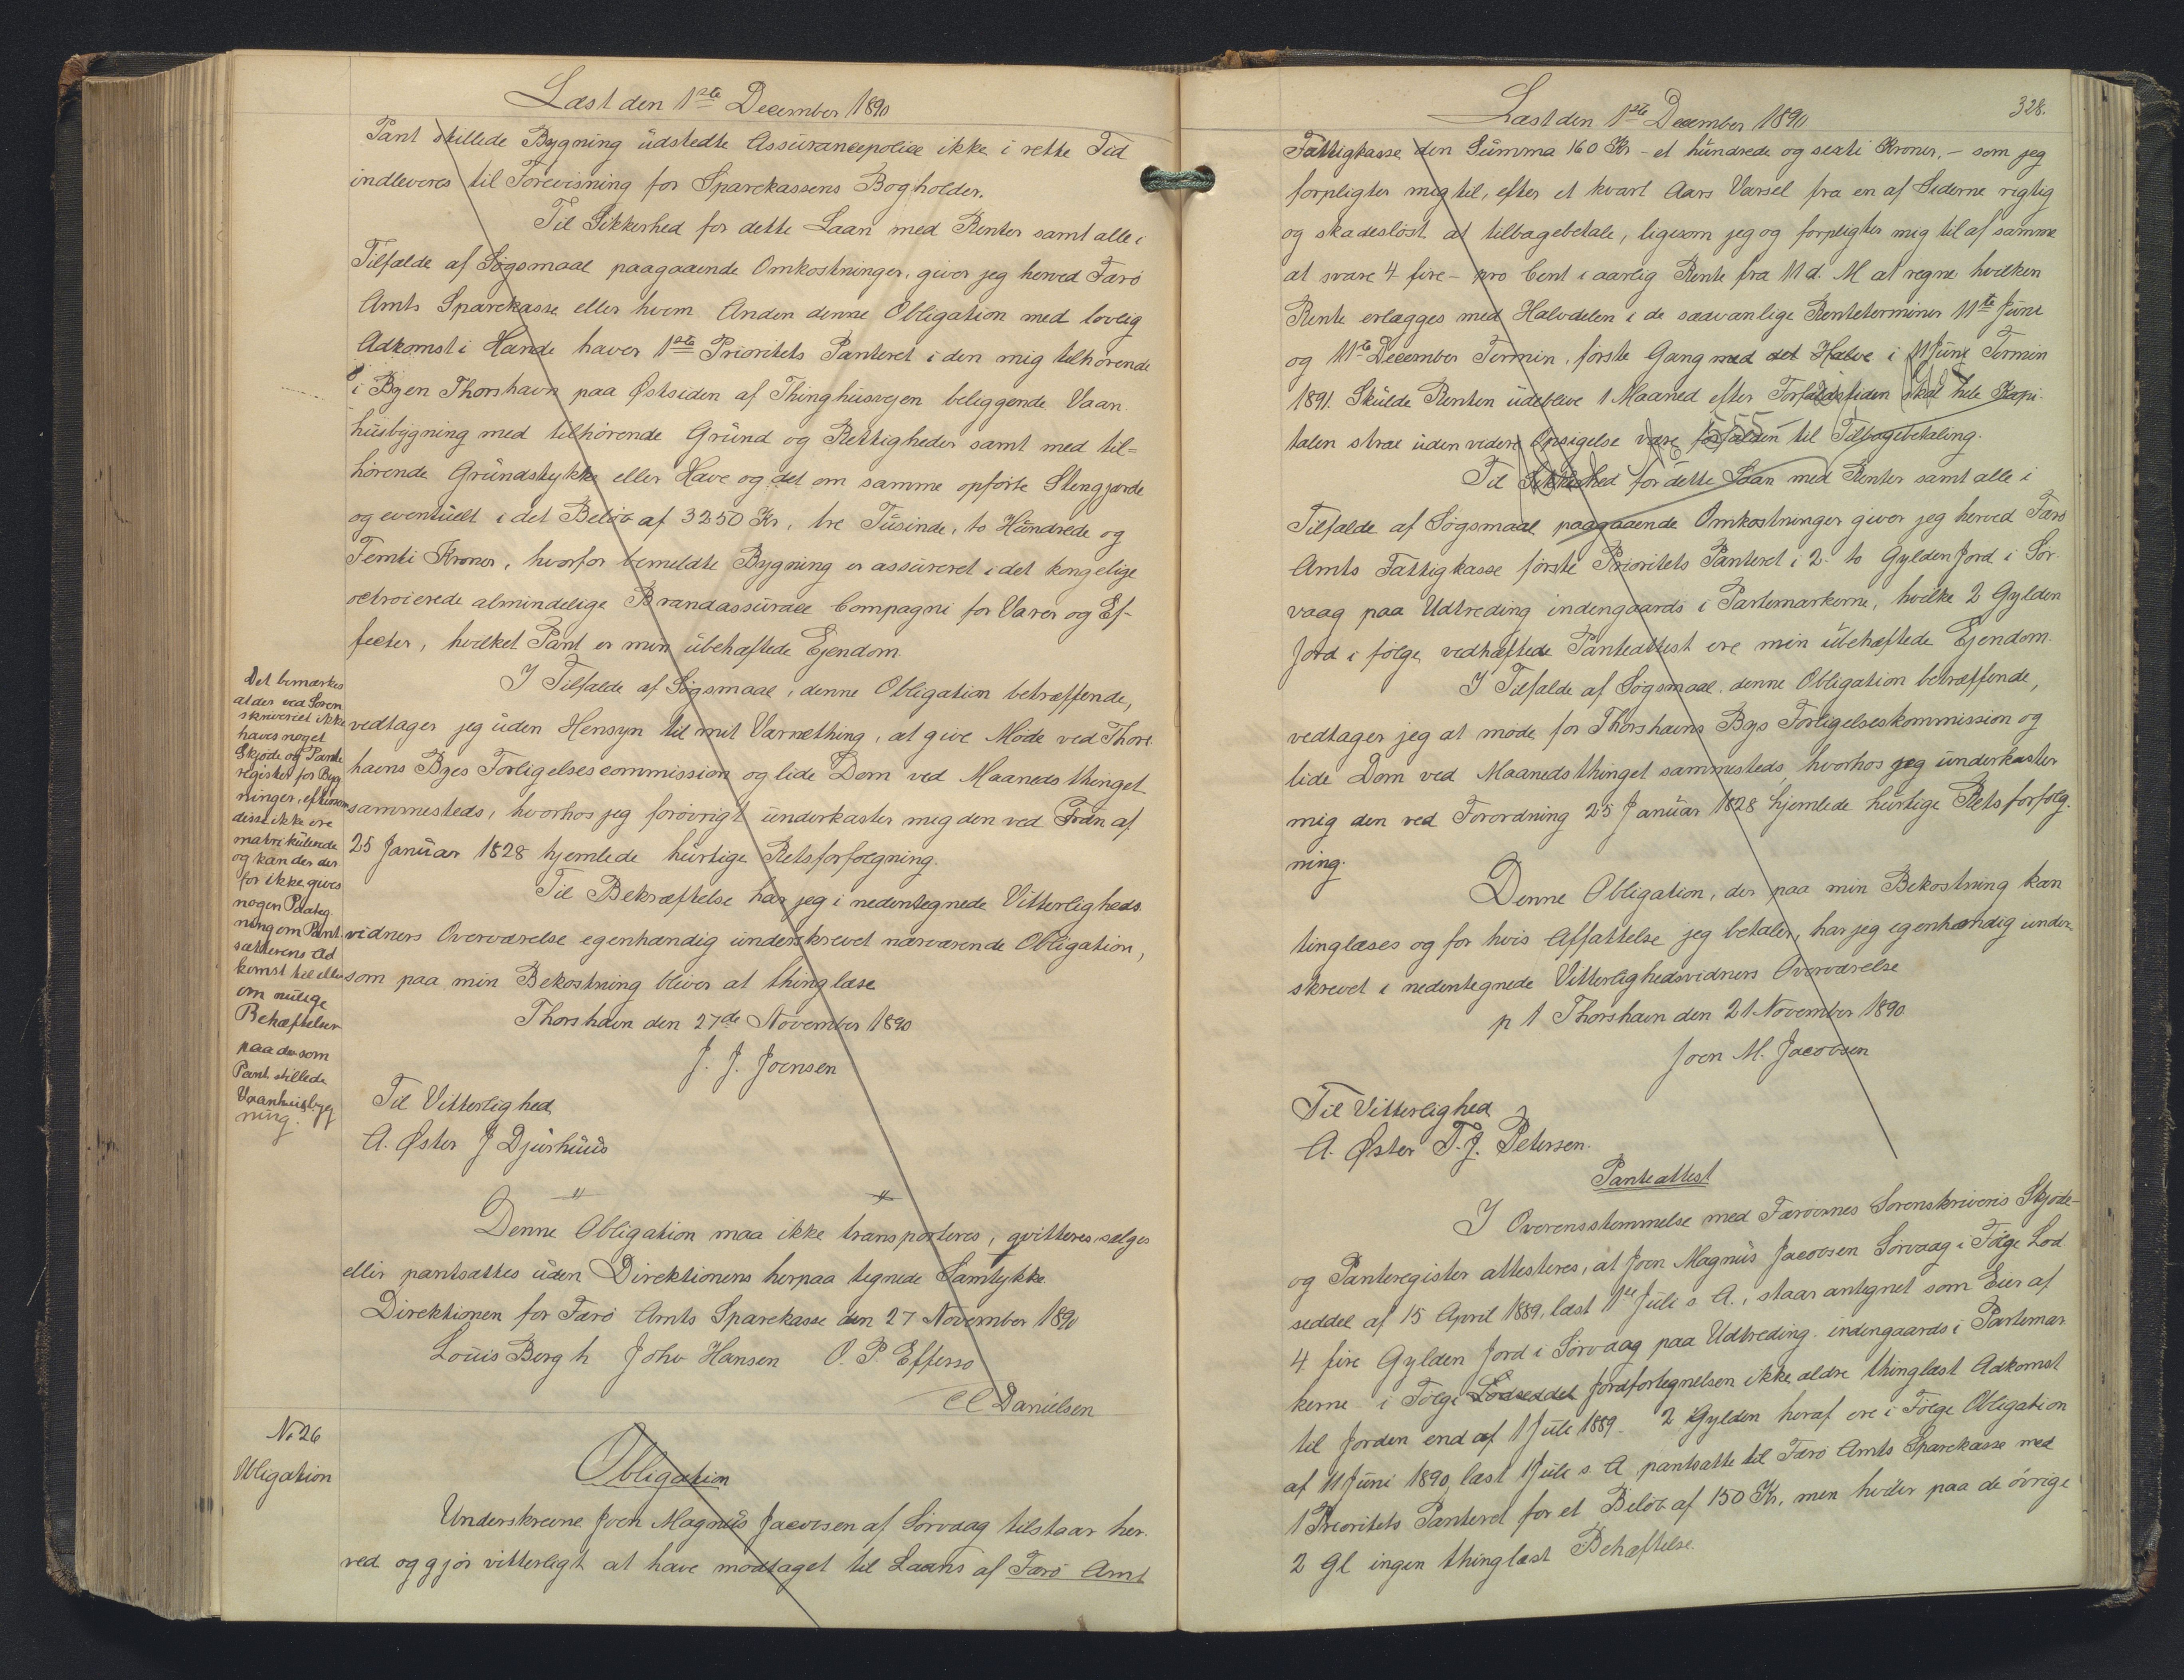 Læst den 1ste December 1890
Pant stillede Bygning udstedte Assurancepolice ikke i rette Tid
indleveres til Forevisning for Sparekassens Bogholder.
Til Sikkerhed for dette Laan med Renter samt alle i
Tilfælde af Søgsmaal paagaaende Omkostninger, giver jeg herved Færø
Amts Sparekasse eller hvem Anden denne Obligation med lovlig
Adkomst i Hænde haver 1ste Prioritets Panteret i den mig tilhørende
i Byen Thorshavn paa Østsiden af Thinghusvejen beliggende Vaan
husbygning med tilhørende Grund og Rettigheder samt med til=
hørende Grundstykke eller Have og det om samme opførte Stengjærde
og eventuelt i det Beløb af 3250 Kr, tre Tusinde, to Hundrede og
Femti Kroner, hvorfor bemeldte Bygning er assureret i det kongelige
octroierede almindelige Brandassurace Compagni for Varer og Ef-
fecter, hvilket Pant er min ubehæftede Ejendom.
I Tilfælde af Søgsmaal, denne Obligation betræffende,
vedtager jeg uden Hensyn til mit Værnething, at give Møde ved Thors
havns Byes Forligelsescommission og lide Dom ved Maanedsthinget
sammesteds, hvorhos jeg forøvrigt underkaster mig den ved Frdn af
25 Januar 1828 hjemlede hurtige Retsforfølgning.
Til Bekræftelse har jeg i nedentegnede Vitterligheds
vidners Overværelse egenhændig underskrevet nærværende Obligation,
som paa min Bekostning bliver at thinglæse
Thorshavn den 27de November 1890
J. J. Joensen
Til Vitterlighed
A. Øster J Djurhuus
" "
Denne Obligation maa ikke transporteres, qvitteres, sælges
eller pantsættes uden Direktionens herpaa tegnede Samtykke
Direktionen for Færø Amts Sparekasse den 27 November 1890
Louis Bergh John Hansen O. P. Effersø
Danielsen
Det bemærkes
at der ved Soren
skriveriet ikke
haves noget
Skjøde og Pante
register for Byg
ninger, eftersom
disse ikke ere
matrikulerede
og kan der der
for ikke gives
nogen Paateg
ning om Pant
sætterens Ad
komst til eller
om mulige
Behæftelser
paa den som
Pant stillede
Vaanhusbyg
ning.
No 26
Obligation
Obligation
Underskrevne Joen Magnus Jacobsen af Sørvaag tilstaar her
ved og gjør vitterligt at have modtaget til Laans af Færø Amt
328.
Læst den 1ste December 1890
Fattigkasse den Summa 160 Kr - et hundrede og sexti Kroner, - som jeg
forpligter mig til, efter et kvart Aars Varsel fra en af Siderne rigtig
og skadesløst at tilbagebetale, ligesom jeg og forpligter mig til af samme
at svare 4 fire - pro Cent i aarlig Rente fra 11 d. M at regne hvilken
Rente erlægges med Halvdelen i de sædvanlige Renteterminer 11te Juni
og 11te December Termin, første Gang med det Halve i 11 Juni Termin
1891. Skulde Renten udeblive 1 Maaned efter Forfaldstiden skal hele Kapi-
talen strax uden videre Opsigelse være forfalden til Tilbagebetaling.
Til Sikkerhed for dette Laan med Renter samt alle i
Tilfælde af Søgsmaal paagaaende Omkostninger giver jeg herved Færø
Amts Fattigkasse første Prioritets Panteret i 2 - to Gylden Jord i Sør
vaag paa Udtreding indengaards i Partemarkerne, hvilke 2 Gylden
Jord i følge vedhæftede Panteattest ere min ubehæftede Ejendom.
I Tilfælde af Søgsmaal, denne Obligation betræffende,
vedtager jeg at møde for Thorshavns Bys Forligelseskommission og
lide Dom ved Maanedsthinget sammesteds, hvorhos jeg underkaster
mig den ved Forordning 25 Januar 1828 hjemlede hurtige Retsforfølg
ning.
Denne Obligation, der paa min Bekostning kan
tinglæses og for hvis Affattelse jeg betaler, har jeg egenhændig under-
skrevet i nedentegnede Vitterlighedsvidners Overværelse
p t Thorshavn den 21 November 1890
Joen M. Jacobsen
Til Vitterlighed
A. Øster T. J. Petersen.
Panteattest
I Overensstemmelse med Færøernes Sorenskriveris Skjøde-
og Panteregister attesteres, at Joen Magnus Jacobsen Sørvaag i Følge Lod
seddel af 15 April 1889, læst 1ste Juli s. A., staar antegnet som Eier af
4 fire Gylden Jord i Sørvaag paa Udtreding indengaards i Partemar
kerne - i Følge Lodseddel Jordfortegnelsen ikke ældre thinglæst Adkomst
til Jorden end af 1 Juli 1889. 2 Gylden heraf ere i Følge Obligation
af 11 Juni 1890, læst 1 Juli s. A pantsatte til Færø Amts Sparekasse med
1 Prioritets Panteret for et Beløb af 150 Kr, men hviler paa de øvrige
2 Gl ingen thinglæst Behæftelse.